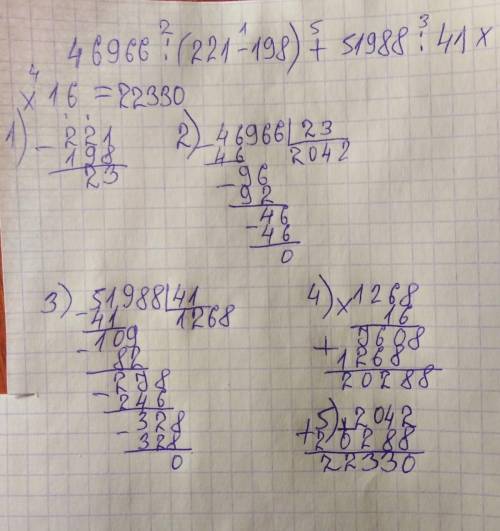 46966 :² (221 -¹ 198) +⁵ 51988 :³ 41 x
x⁴ 16 = 22330
1) - 221
198
23
2) - 46966 | 23
46 2042
- 96
92
- 46
46
0
3) - 51988 | 41
41 1268
- 109
82
- 278
246
- 328
328
0
4) x 1268
16
+ 7608
1268
20288
5) + 2042
20288
22330